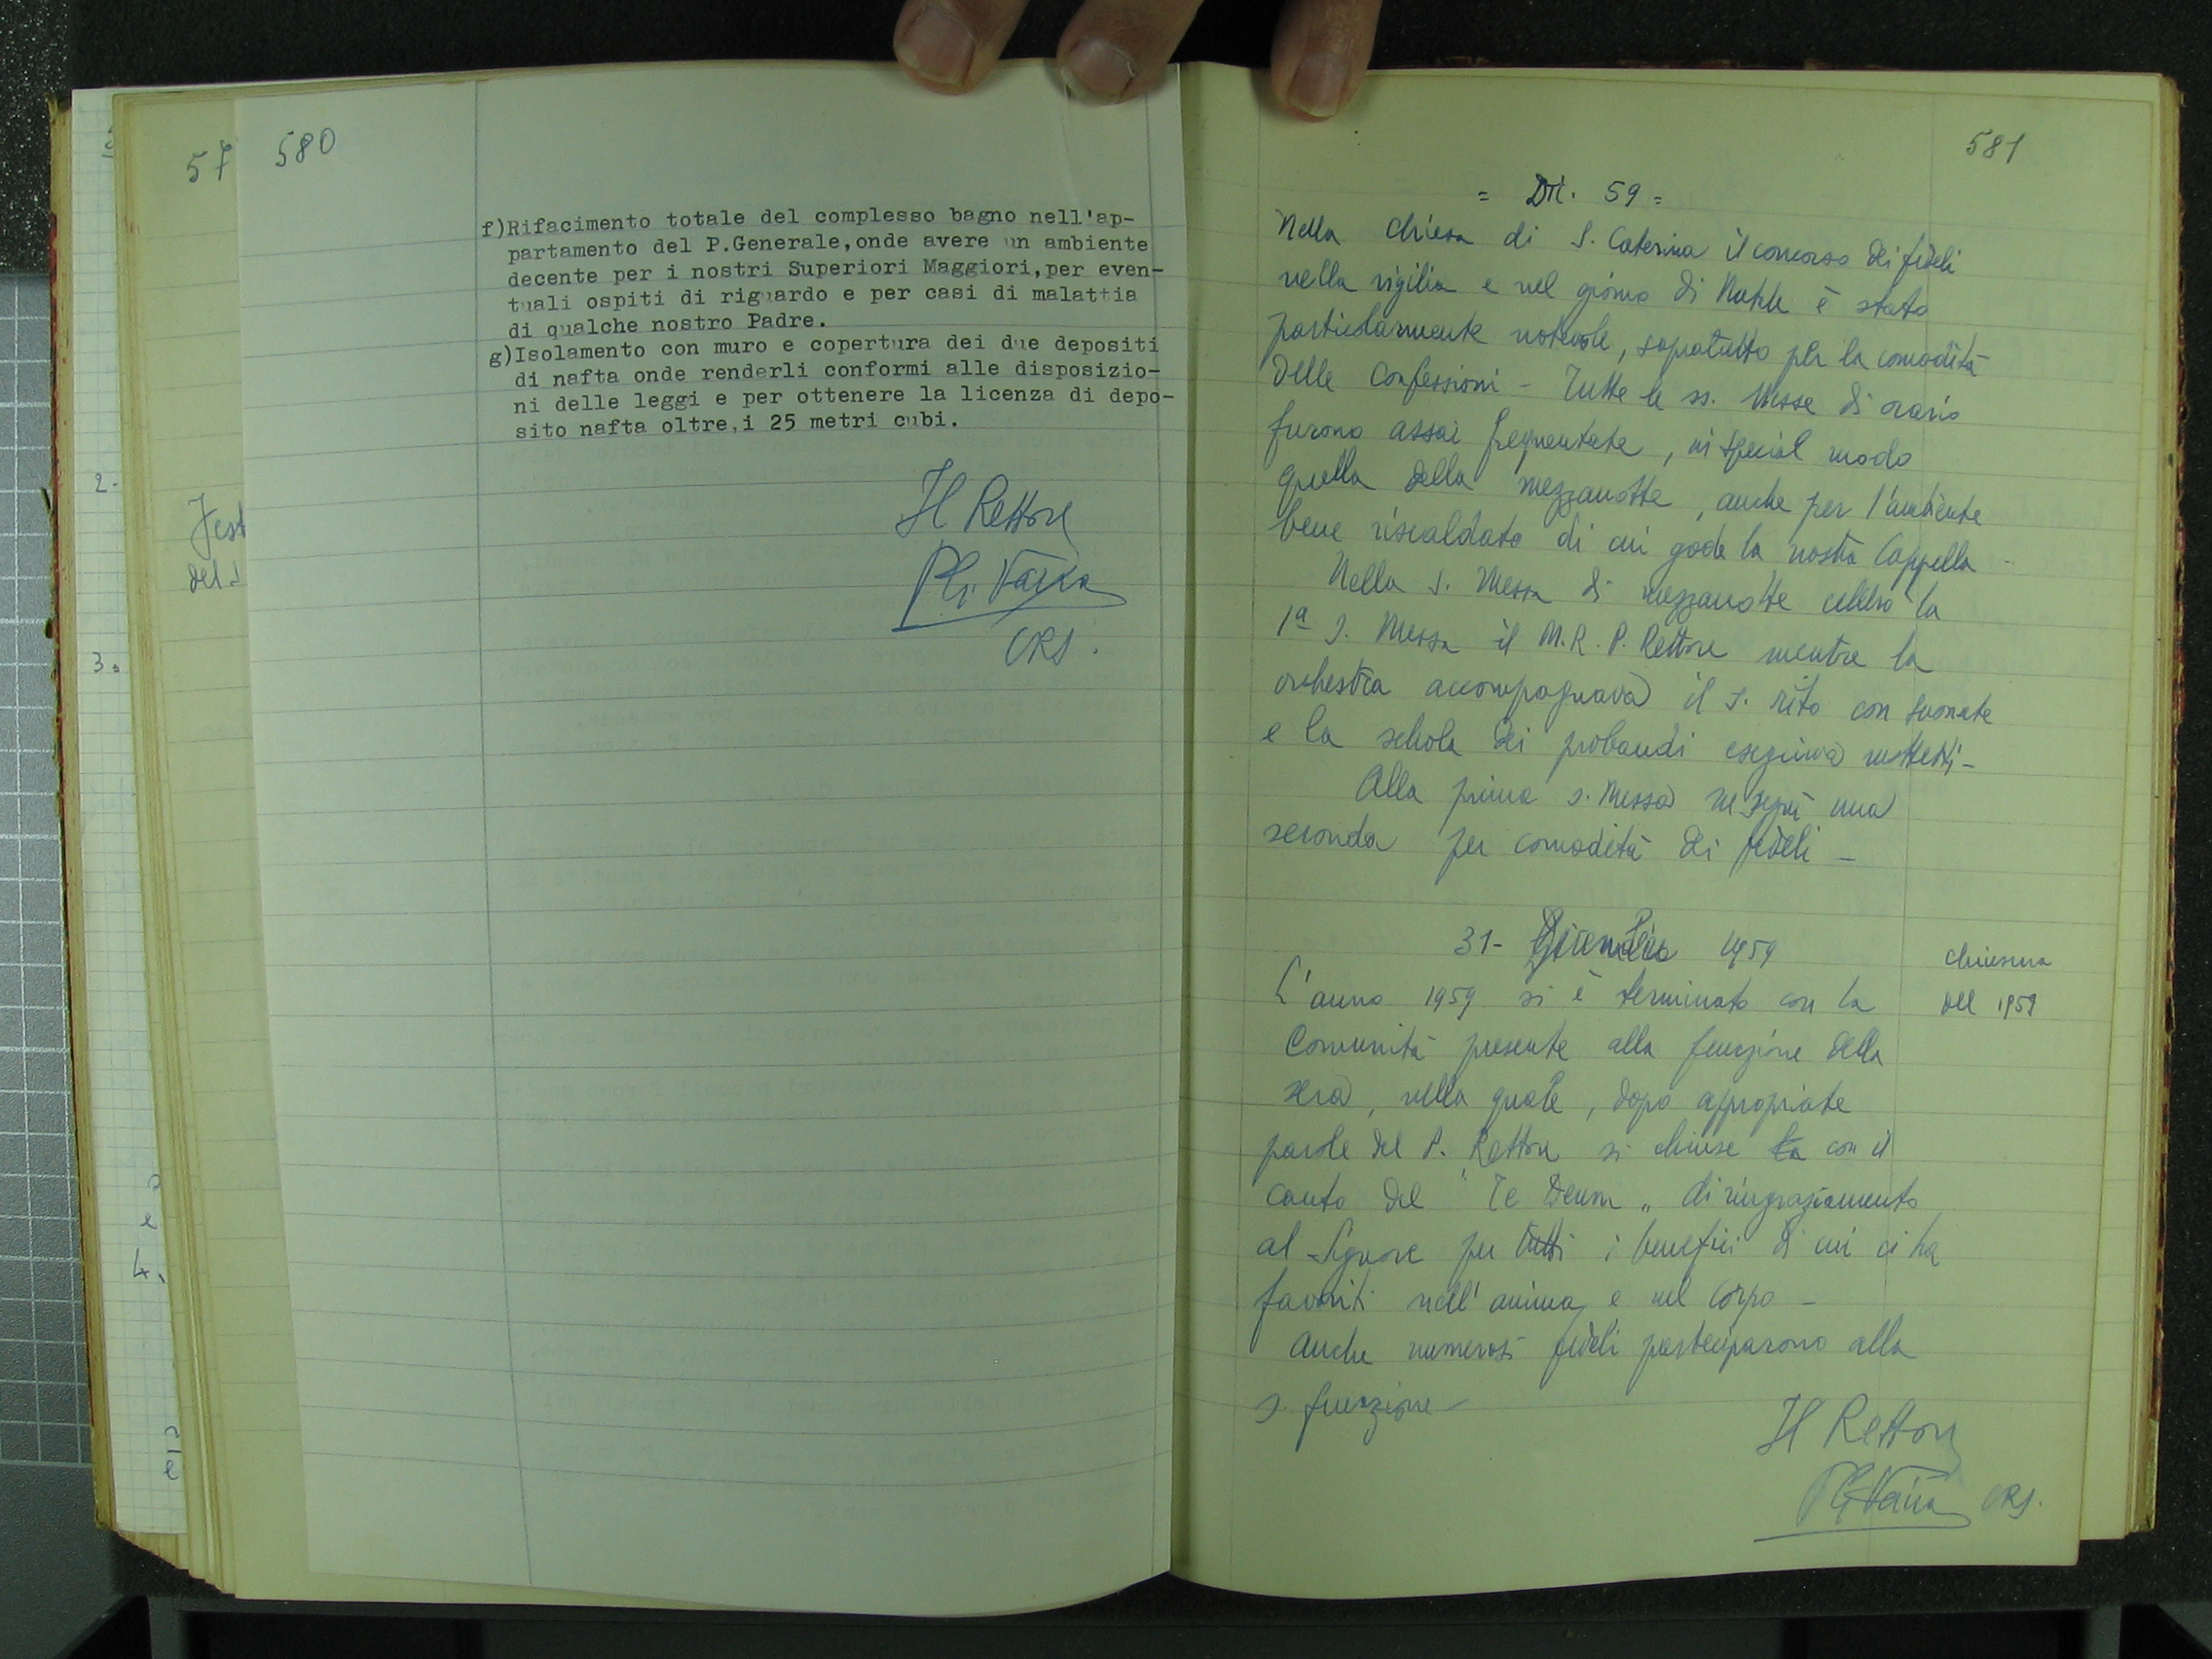 57
580
2.
Fest
del
3.
4.
f)Rifacimento totale del complesso bagno nell'ap-
partamento del P.Generale,onde avere un ambiente
decente per i nostri Superiori Maggiori,per even-
tuali ospiti di riguardo e per casi di malattia
di qualche nostro Padre.
g)Isolamento con muro e copertura dei due depositi
di nafta onde renderli conformi alle disposizio-
ni delle leggi e per ottenere la licenza di depo-
sito nafta oltre,i 25 metri cubi.
Il Rettore
CRS.
581
= Dic. 59 =
Nella chiesa di S. Caterina il concorso dei fedeli
nella vigilia e nel giorno di Natale è stato
particolarmente notevole, sopratutto per la comodità
delle Confessioni - Tutte le ss. Messe di orario
furono assai frequentate, in special modo
quella della mezzanotte, anche per l'ambiente
bene riscaldato di cui gode la nostra Cappella -
Nella S. Messa di mezzanotte celebrò la
1ª S. Messa il M.R.P. Rettore mentre la
orchestra accompagnava il s. rito con suonate
e la schola dei probandi eseguiva mottetti -
Alla prima s. Messa ne seguì una
seconda per comodità dei fedeli -
31- 1959
chiusura
del 1959
L'anno 1959 si è terminato con la
Comunità presente alla funzione della
sera, nella quale, dopo appropriate
parole del P. Rettore si chiuse la con il
canto del "Te Deum" di ringraziamento
al Signore per tutti i benefici di cui ci ha
favoriti nell'anima e nel corpo -
Anche numerosi fedeli parteciparono alla
s. funzione -
Il Rettore
CRS.